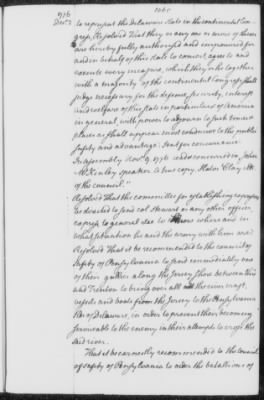 1776
Dec. 2
to represent the Delaware State in the continental Con-
gress, Resolved That they or any one or more of them
are hereby fully authorized and impowered for
and in behalf of this state to concert, agree to and
execute every measure, which they or he together
with a majority of the continental Congress shall
judge necessary for the defence, security, interest
and welfare of this state in particular & America
in general, with power to adjourn to such times &
places as shall appear most conducive to the public
safety and advantage. Sent for concurrence
In assembly Nov. 9. 1776 read & concurred in, John
McKinly speaker. a true copy, Slator Clay clk
of the council."
Resolved That the committee for establishing expresses
be directed to send col. Stewart or any other officer
express to general Lee to know where & in
what situation he and the army with him are.
Resolved That it be recommended to the council of
safety of Pensylvania to send immediately one
of their gallies along the Jersey shore between this
and Trenton to bring over all river craft,
vessels and boats from the Jersey to the Pensylvania
side of Delaware, in order to prevent their becoming
serviceable to the enemy in their attempts to cross the
said river.
That it be earnestly recommended to the council
of safety of Pensylvania to order the battalions of